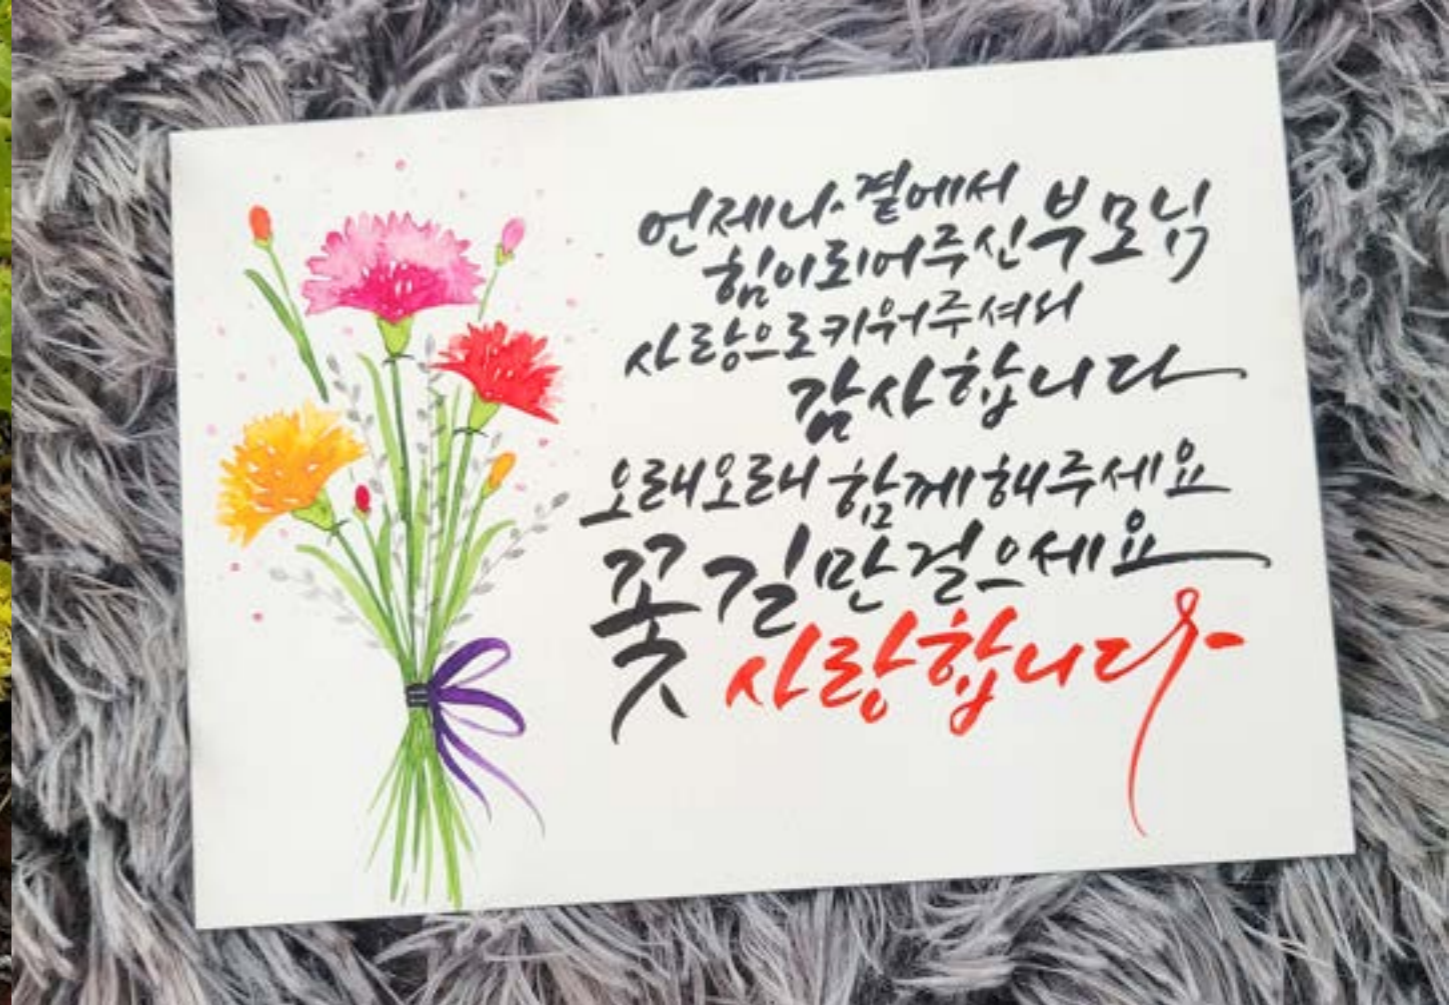 언제나 곁에서
힘이되어주신 부모님
사랑으로 키워주셔서
감사합니다
오래오래 함께해주세요
꽃길만 걸으세요
사랑합니다